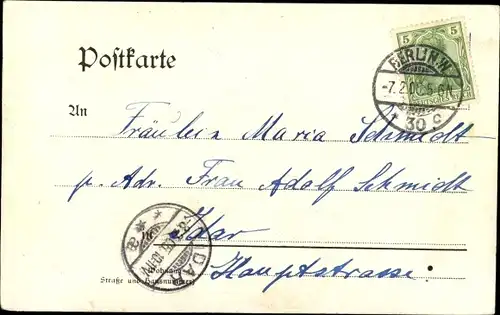 Postkarte
5 5
BERLIN.W.
-7.2.06.5-6N.
* 30 c
An
Fräulein Maria Schmidt
p. Adr. Frau Adolf Schmidt
in Idar
IDAR
Wohnung
Hauptstrasse.
Straße und Hausnummer